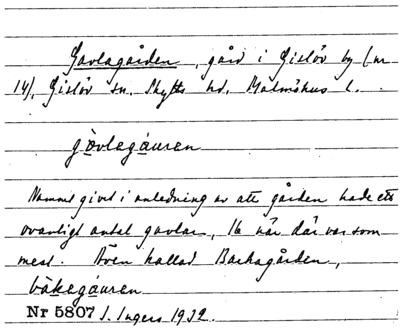 Gavlagården, gård i Gislöv by (nr
14), Gislöv sn. Skytts hd, Malmöhus l.
gòvlegáuren
Namnet givet i anledning av att gården hade ett
ovanligt antal gavlar, 16 när där var som
mest. Även kallad Backagården,
bàkegáuren
Nr 5807 I. Ingers 1932.